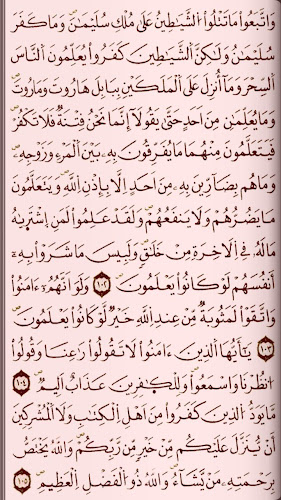 وَاتَّبَعُواْ مَا تَتْلُواْ الشَّيَٰطِينُ عَلَىٰ مُلْكِ سُلَيْمَٰنَ وَمَا كَفَرَ
سُلَيْمَٰنُ وَلَٰكِنَّ الشَّيَٰطِينَ كَفَرُواْ يُعَلِّمُونَ النَّاسَ
السِّحْرَ وَمَآ أُنزِلَ عَلَى الْمَلَكَيْنِ بِبَابِلَ هَٰرُوتَ وَمَٰرُوتَ
وَمَا يُعَلِّمَٰنِ مِنَ اَحَدٍ حَتَّىٰ يَقُولَآ إِنَّمَا نَحْنُ فِتْنَةٌ فَلَا تَكْفُرْ
فَيَتَعَلَّمُونَ مِنْهُمَا مَا يُفَرِّقُونَ بِهِۦ بَيْنَ الْمَرْءِ وَزَوْجِهِۦ
وَمَا هُم بِضَآرِّينَ بِهِۦ مِنَ اَحَدٍ اِلَّا بِإِذْنِ اللَّهِ وَيَتَعَلَّمُونَ
مَا يَضُرُّهُمْ وَلَا يَنفَعُهُمْ وَلَقَدْ عَلِمُواْ لَمَنِ اِشْتَرَيٰهُ
مَا لَهُۥ فِي اِلَاخِرَةِ مِنْ خَلَٰقٍ وَلَبِيسَ مَا شَرَوْاْ بِهِۦٓ
أَنفُسَهُمْ لَوْ كَانُواْ يَعْلَمُونَ ١٠٢ وَلَوَ اَنَّهُمُۥٓ ءَامَنُواْ
وَاتَّقَوْاْ لَمَثُوبَةٌ مِّنْ عِندِ اللَّهِ خَيْرٌ لَّوْ كَانُواْ يَعْلَمُونَ
١٠٣ يَٰٓأَيُّهَا الَّذِينَ ءَامَنُواْ لَا تَقُولُواْ رَٰعِنَا وَقُولُواْ
اُنظُرْنَا وَاسْمَعُواْ وَلِلْكَٰفِرِينَ عَذَابٌ اَلِيمٌ ١٠٤
مَّا يَوَدُّ الَّذِينَ كَفَرُواْ مِنَ اَهْلِ الْكِتَٰبِ وَلَا الْمُشْرِكِينَ
أَنْ يُّنَزَّلَ عَلَيْكُم مِّنْ خَيْرٍ مِّن رَّبِّكُمْ وَاللَّهُ يَخْتَصُّ
بِرَحْمَتِهِۦ مَنْ يَّشَآءُ وَاللَّهُ ذُو الْفَضْلِ الْعَظِيمِ ١٠٥